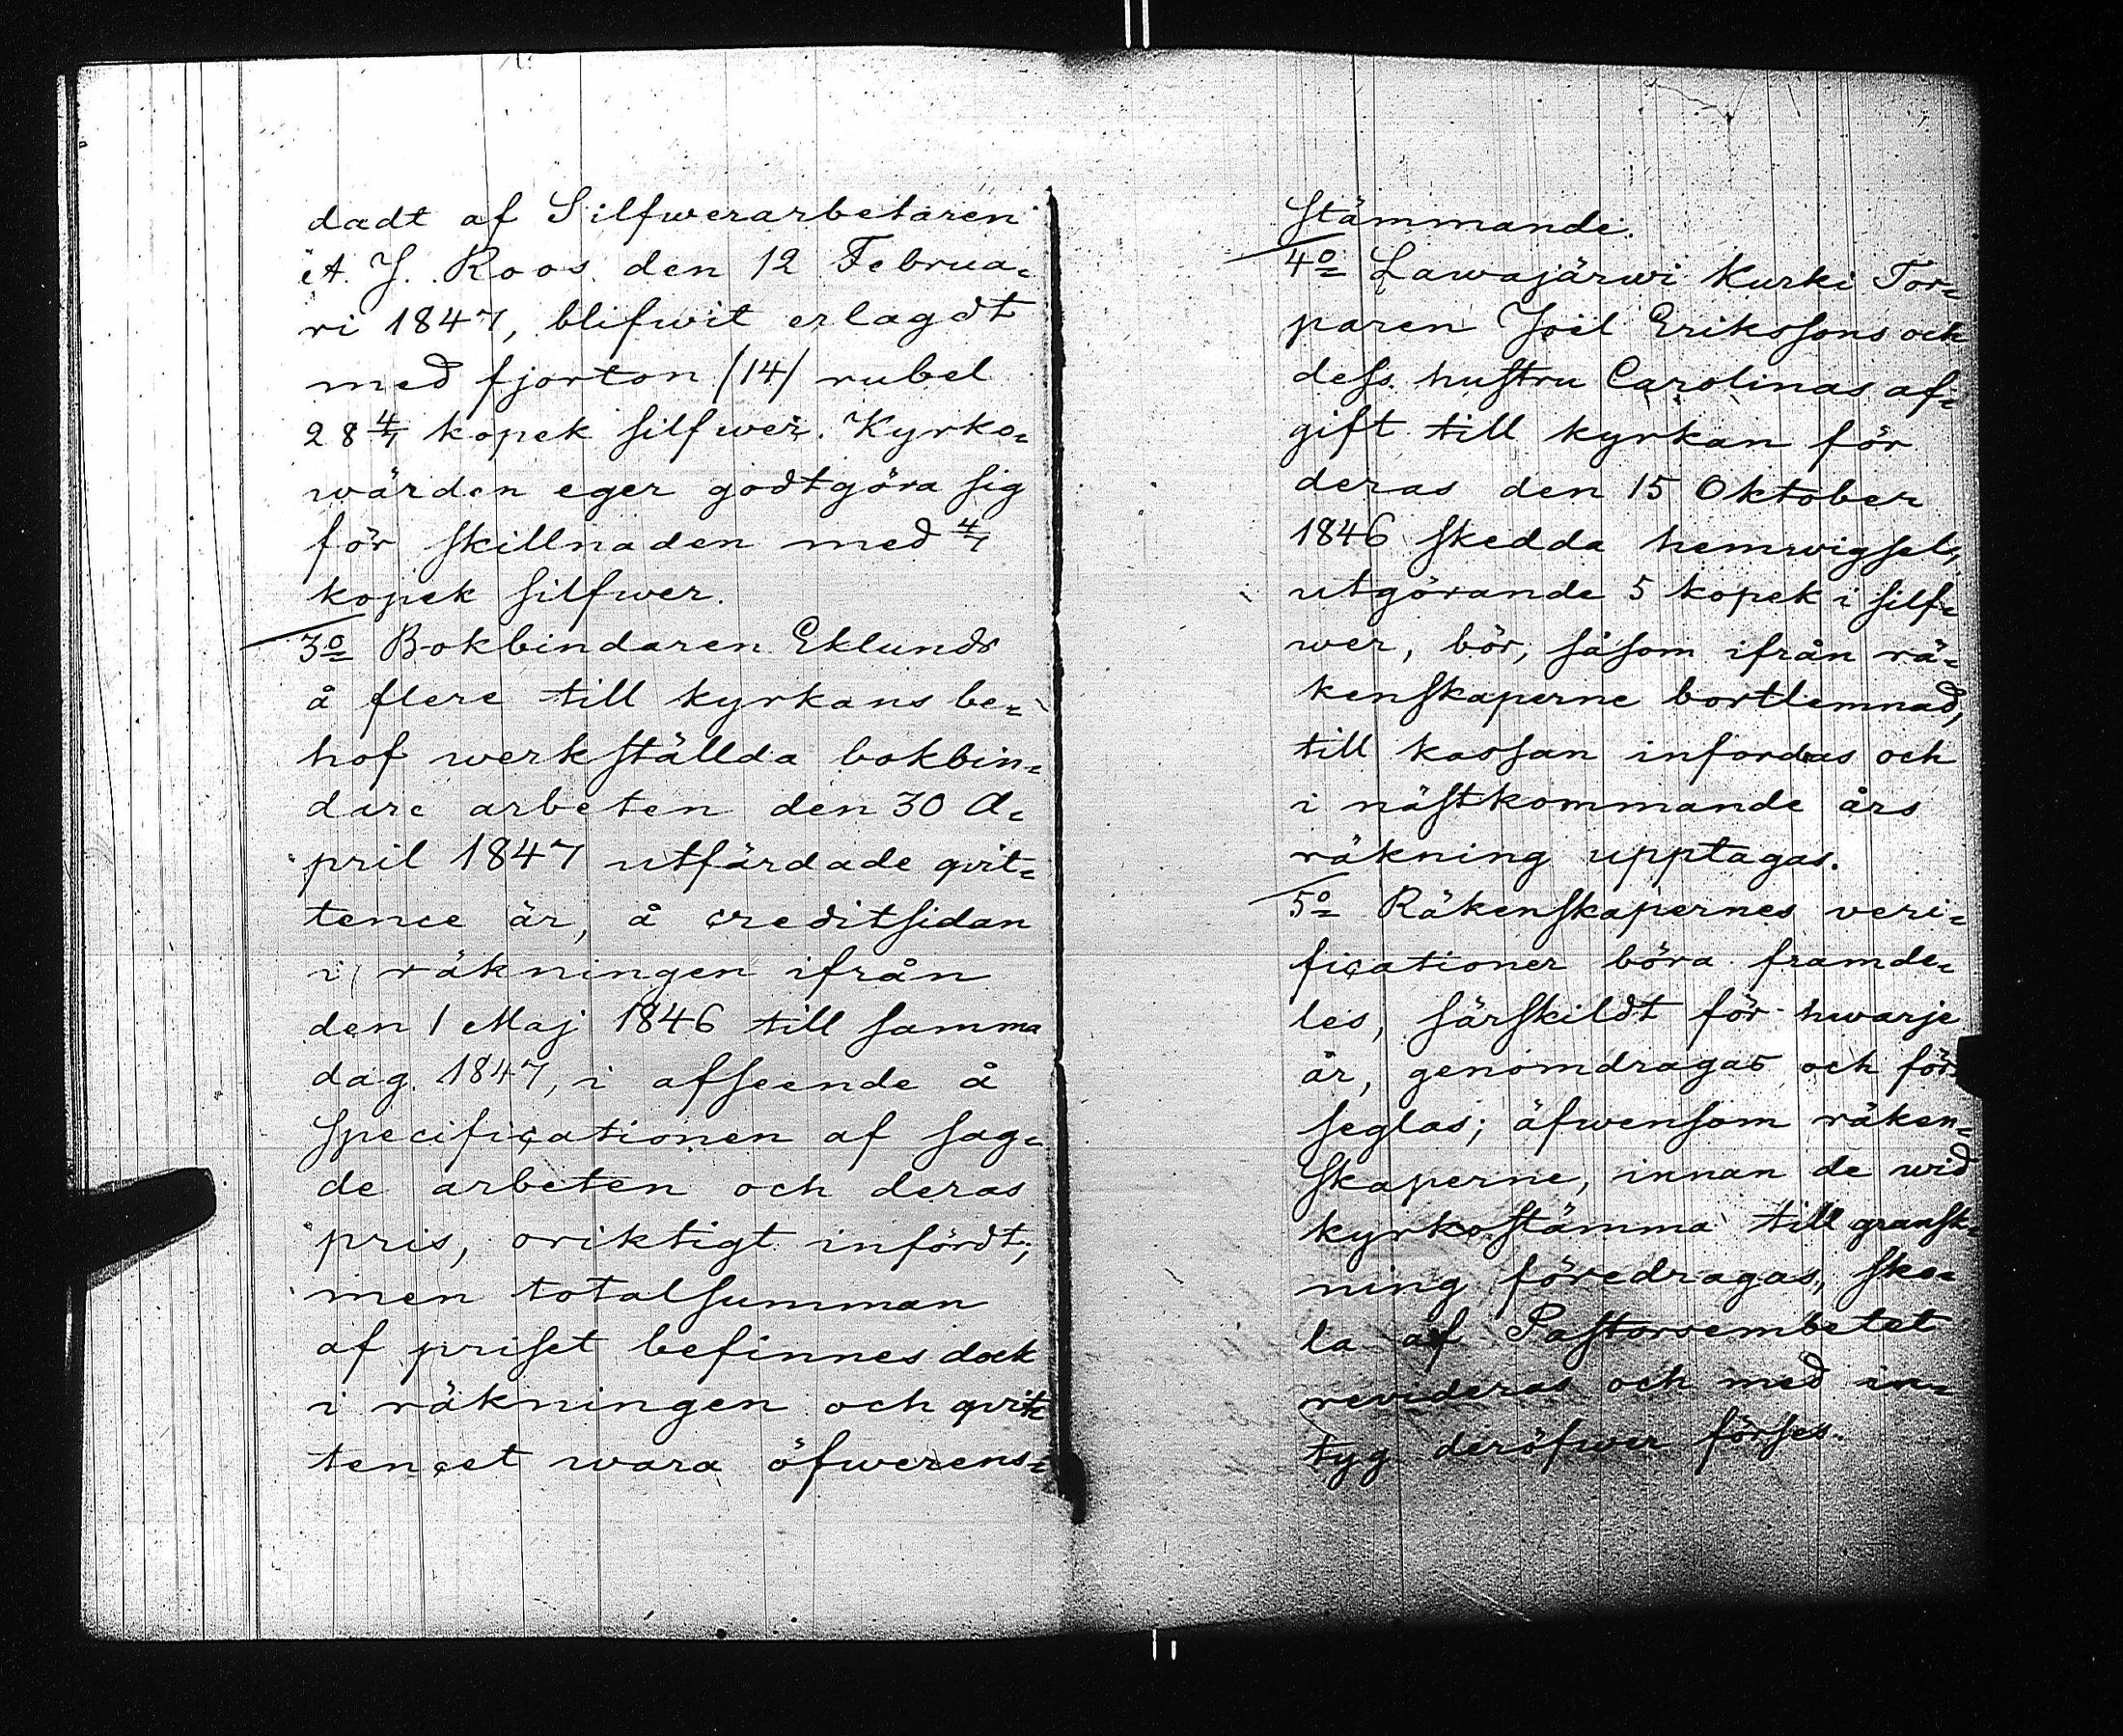 dadt af Silfwerarbetaren
A. J. Roos den 12 Februa=
ri 1847, blifwit erlagdt
med fjorton /14/ rubel
28 4/7 kopek silfwer. Kyrko=
wärden eger godtgöra sig
för skillnaden med 4/7
kopek silfwer.
3o Bokbindaren Eklunds
å flere till kyrkans be=
hof werkställda bokbin=
dare arbeten den 30 A=
pril 1847 utfärdade qvit=
tence är, å creditsidan
i räkningen ifrån
den 1 Maj 1846 till samma
dag 1847, i afseende å
specificationen af sag=
de arbeten och deras
pris, oriktigt infördt;
men totalsumman
af priset befinnes dock
i räkningen och qvit=
tencet wara öfwerens=
stämmande.
4o Lawajärwi Kurki Tor=
paren Joel Erikssons och
dess hustru Carolinas af=
gift till kyrkan för
deras den 15 Oktober
1846 skedda hemwigsel,
utgörande 5 kopek i silf=
wer, bör, såsom ifrån rä=
kenskaperne bortlemnad,
till kassan infordras och
i nästkommande års
räkning upptagas.
5o Räkenskapernes veri=
ficationer böra framde=
les, särskildt för hwarje
år, genomdragas och för=
seglas; äfwensom räken=
skaperne, innan de wid
kyrkostämma till gransk=
ning föredragas, sko=
la af Pastorsembetet
revideras och med in=
tyg deröfwer förses.